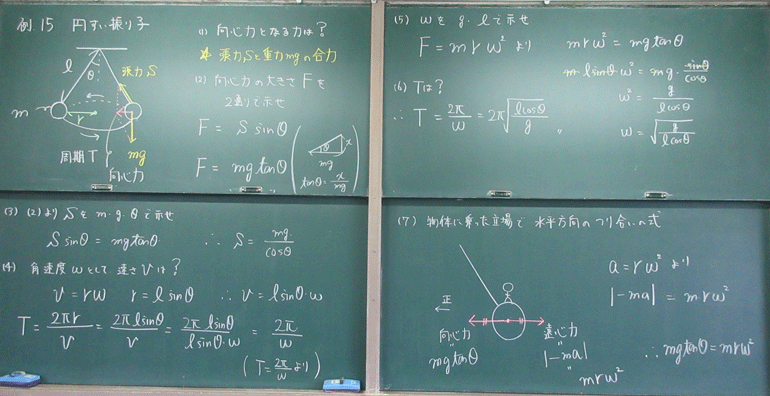 例15 円すい振り子
l
θ
張力S
m
r
mg
周期T
向心力
(1) 向心力となる力は?
張力Sと重力mgの合力
(2) 向心力の大きさFを
2通りで示せ
F = S sinθ
F = mg tanθ
θ
x
mg
tanθ = x/mg
(3) (2)よりSをm・g・θで示せ
S sinθ = mg tanθ ∴ S = mg/cosθ
(4) 角速度ωとして速さvは?
v = rω r = l sinθ ∴ v = l sinθ・ω
T = 2πr/v = 2πl sinθ/v = 2πl sinθ/l sinθ・ω = 2π/ω
(T = 2π/ω より)
(5) ωをg・lで示せ
F = mrω² より mrω² = mg tanθ
m・l sinθ ω² = mg・sinθ/cosθ
ω² = g/l cosθ
ω = √(g/l cosθ)
(6) Tは?
∴ T = 2π/ω = 2π√(l cosθ/g)
(7) 物体に乗った立場で 水平方向のつり合いの式
正
向心力
mg tanθ
遠心力
|-ma|
mrω²
a = rω² より
|-ma| = mrω²
∴ mg tanθ = mrω²